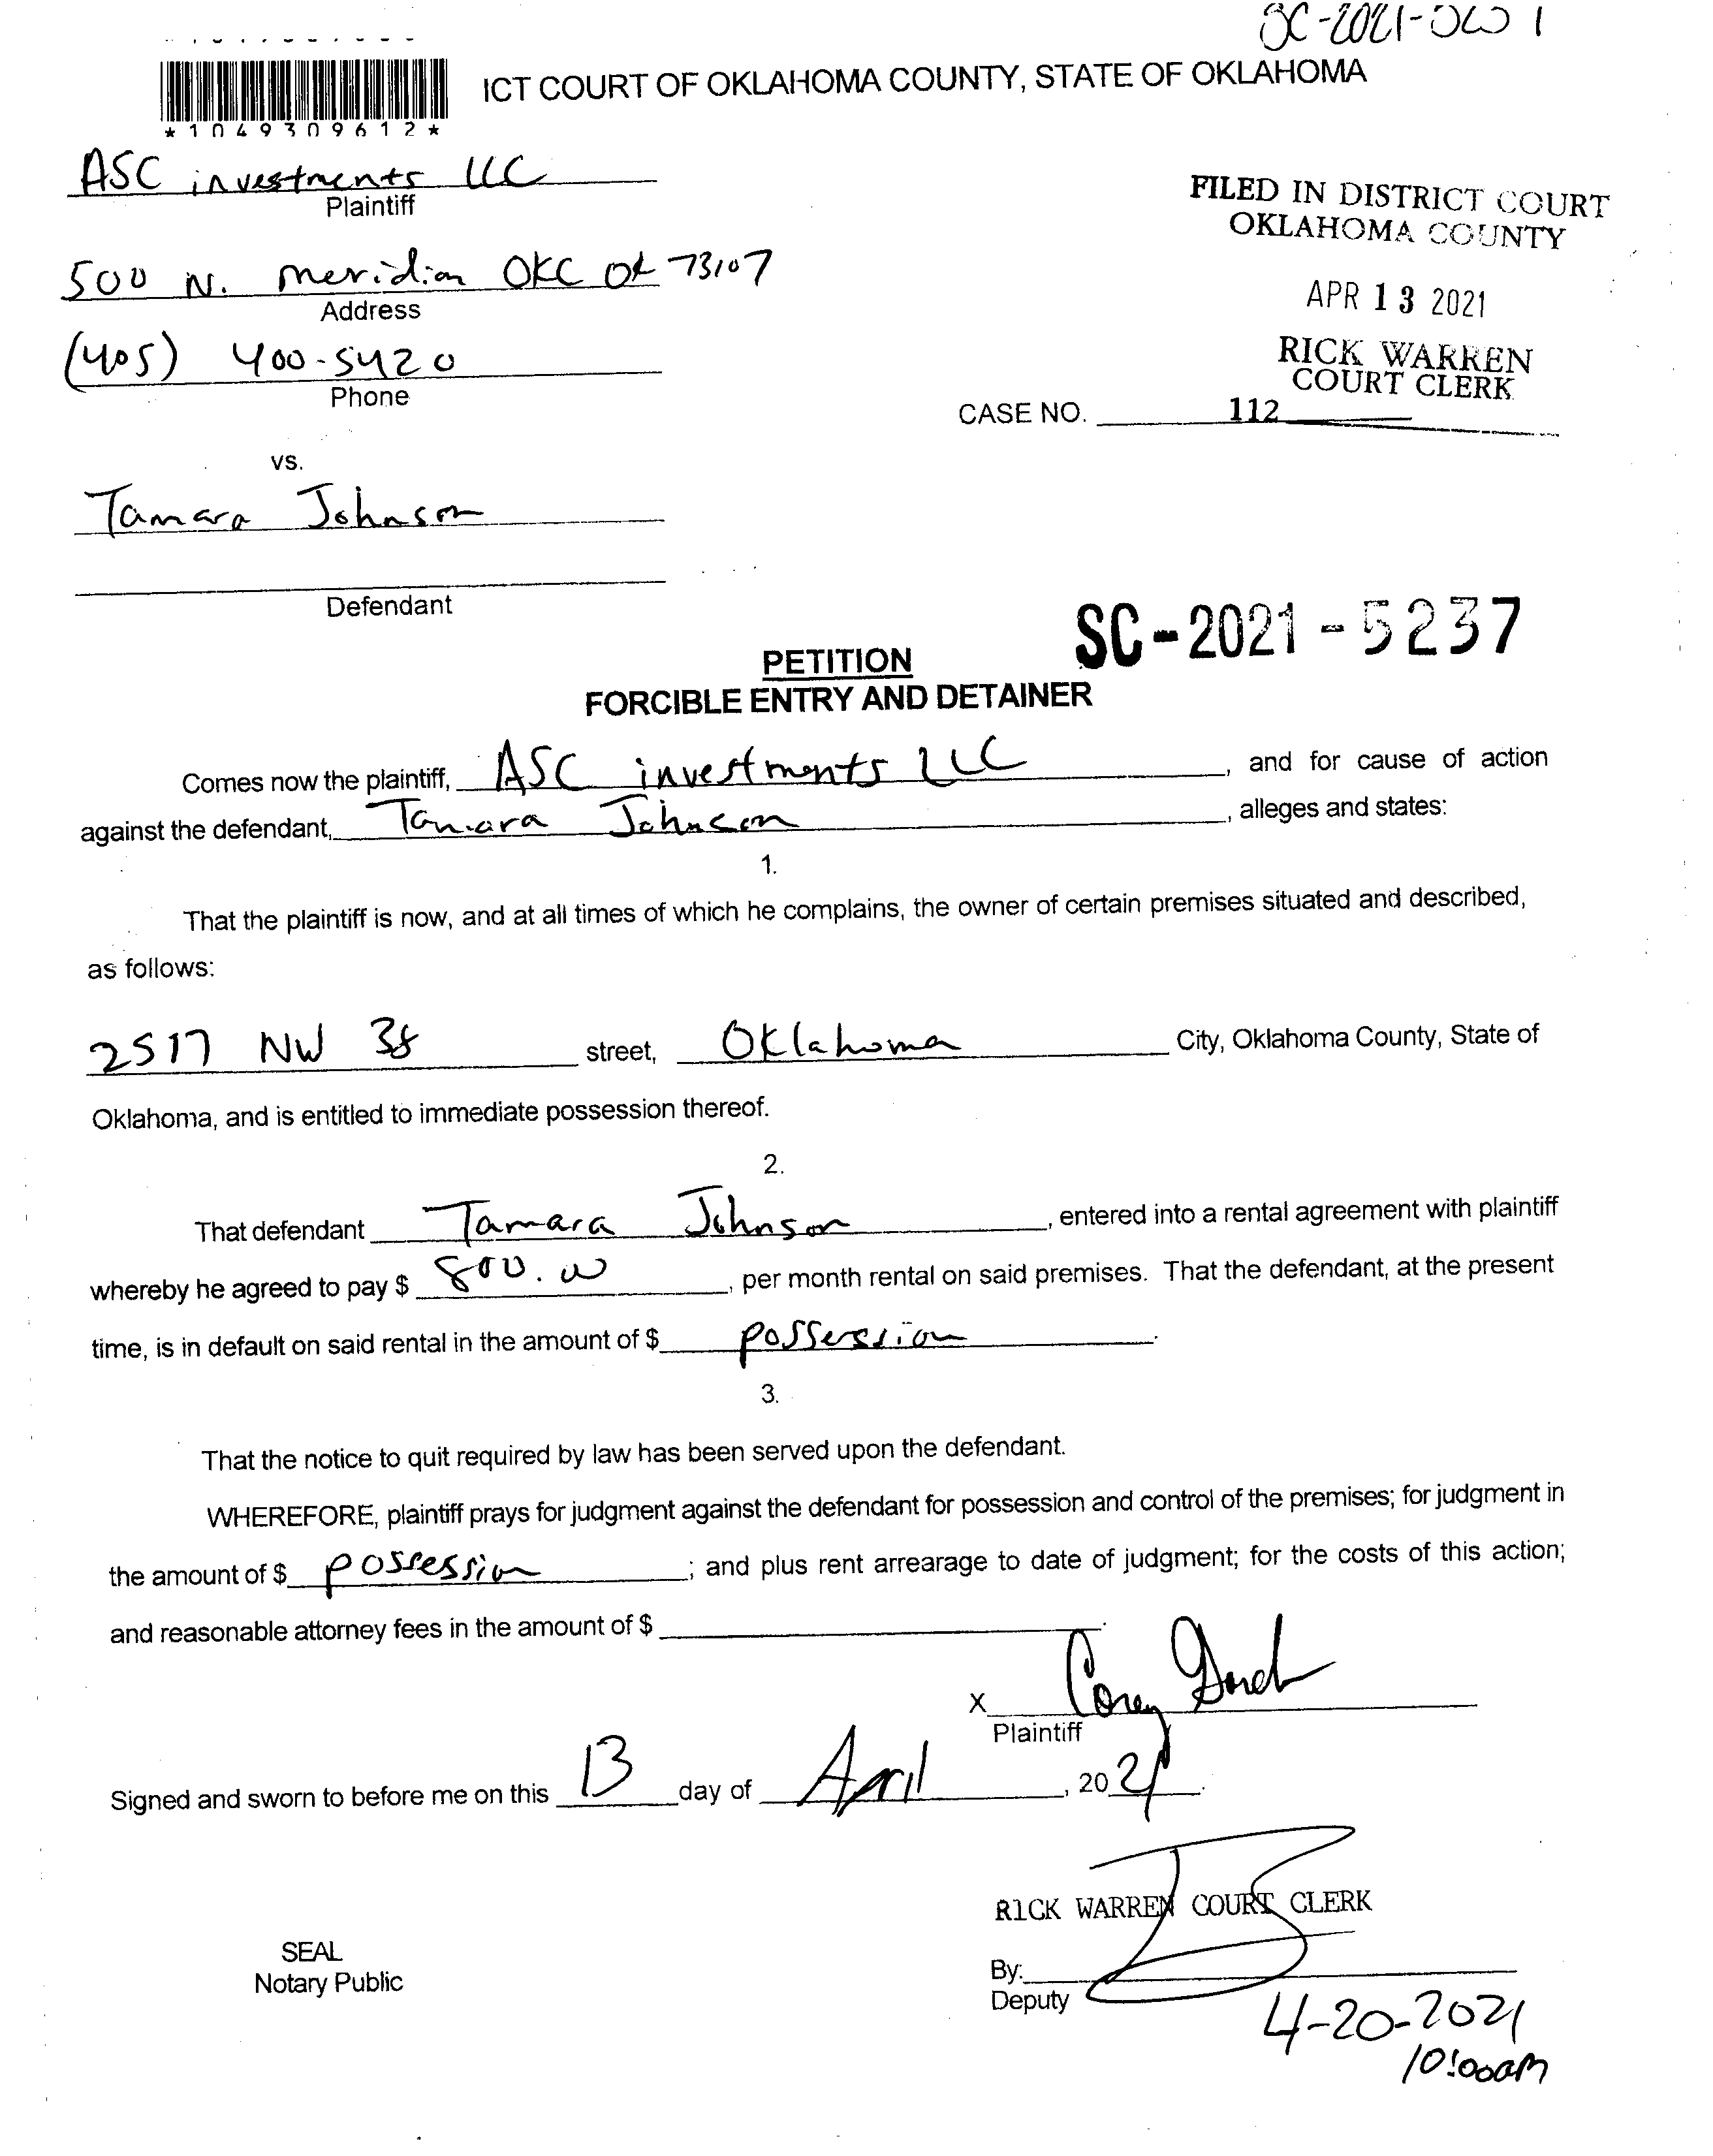 SC-2021-
*1049309612*
ICT COURT OF OKLAHOMA COUNTY, STATE OF OKLAHOMA
ASC investments LLC
Plaintiff
FILED IN DISTRICT COURT
OKLAHOMA COUNTY
500 N. meridian OKC OK 73107
Address
APR 13 2021
(405) 400-5420
Phone
RICK WARREN
COURT CLERK
CASE NO. 112
vs.
Tamara Johnson
Defendant
SC-2021-5237
PETITION
FORCIBLE ENTRY AND DETAINER
Comes now the plaintiff, ASC investments LLC, and for cause of action
against the defendant, Tamara Johnson, alleges and states:
1.
That the plaintiff is now, and at all times of which he complains, the owner of certain premises situated and described,
as follows:
2517 NW 38 street, Oklahoma City, Oklahoma County, State of
Oklahoma, and is entitled to immediate possession thereof.
2.
That defendant Tamara Johnson, entered into a rental agreement with plaintiff
whereby he agreed to pay $ 800.00, per month rental on said premises. That the defendant, at the present
time, is in default on said rental in the amount of $ possession.
3.
That the notice to quit required by law has been served upon the defendant.
WHEREFORE, plaintiff prays for judgment against the defendant for possession and control of the premises; for judgment in
the amount of $ possession; and plus rent arrearage to date of judgment; for the costs of this action;
and reasonable attorney fees in the amount of $
X Corey
Plaintiff
Signed and sworn to before me on this 13 day of April, 2021.
RICK WARREN COURT CLERK
SEAL
Notary Public
By:
Deputy
4-20-2021
10:00am